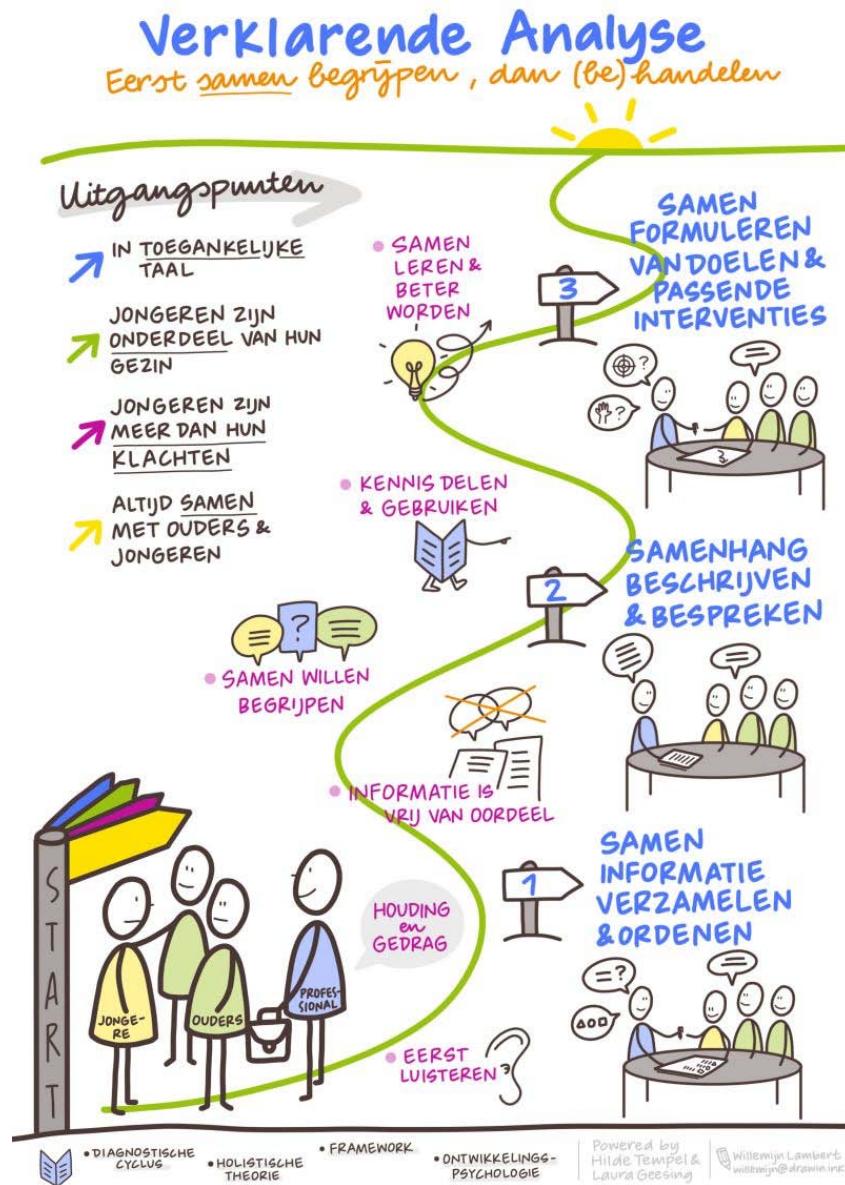 Verklarende Analyse
Eerst samen begrijpen, dan (be)handelen
Uitgangspunten
IN TOEGANKELIJKE
TAAL
JONGEREN ZIJN
ONDERDEEL VAN HUN
GEZIN
JONGEREN ZIJN
MEER DAN HUN
KLACHTEN
ALTIJD SAMEN
MET OUDERS &
JONGEREN
• SAMEN
LEREN &
BETER
WORDEN
3
SAMEN
FORMULEREN
VAN DOELEN &
PASSENDE
INTERVENTIES
?
?
• KENNIS DELEN
& GEBRUIKEN
2
SAMENHANG
BESCHRIJVEN
& BESPREKEN
?
• SAMEN WILLEN
BEGRIJPEN
• INFORMATIE IS
VRIJ VAN OORDEEL
1
SAMEN
INFORMATIE
VERZAMELEN
& ORDENEN
=?
START
HOUDING
en
GEDRAG
JONGE-
RE
OUDERS
PROFES-
SIONAL
• EERST
LUISTEREN
• DIAGNOSTISCHE
CYCLUS
• HOLISTISCHE
THEORIE
• FRAMEWORK
• ONTWIKKELINGS-
PSYCHOLOGIE
Powered by
Hilde Tempel &
Laura Geesing
Willemijn Lambert
willemijn@drawin.ink